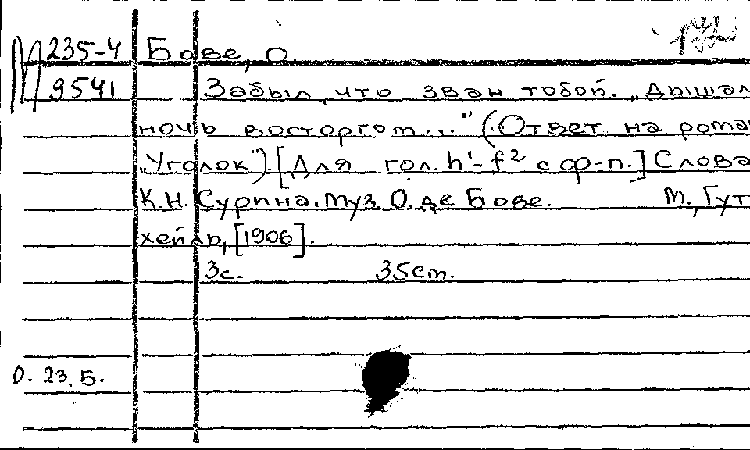 М 235-4 Бове, О
9541 Забыл, что зван тобой. „Дышал
ночь восторгом..." (Ответ на рома
„Уголок") [Для гол. h¹-f² с ф-п.] Слова
К.Н. Сурина. Муз. О. де Бове. М., Гут
хейль, [1906].
3с. 35cm.
О. 23. Б.